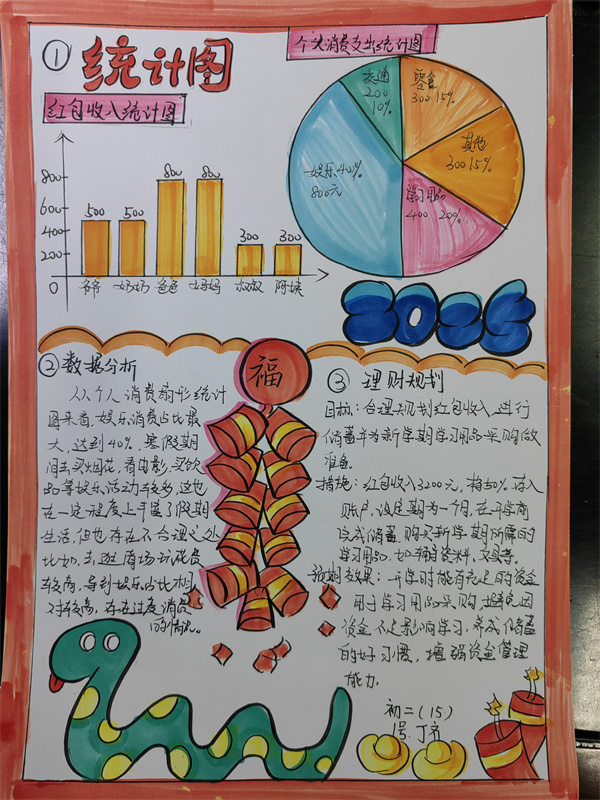 ① 统计图
红包收入统计图
800
600
400
200
0
500
500
800
800
300
300
爷爷
奶奶
爸爸
妈妈
叔叔
阿姨
个人消费支出统计图
交通
200
10%
零食
300 15%
其他
300 15%
学习用品
400 20%
娱乐 40%
800元
2025
福
② 数据分析
从个人消费扇形统计
图来看,娱乐消费占比最
大,达到40%,寒假期
间去买烟花,看电影,买饮
品等娱乐活动较多,这也
在一定程度上丰富了假期
生活,但也存在不合理之处
比如,去逛商场玩花费
较高,导致娱乐占比相
对较高,存在过度消费
的情况。
③ 理财规划
目标:合理规划红包收入,进行
储蓄并为新学期学习用品采购做
准备。
措施:红包收入3200元,将50%存入
账户,设定期为一个月,在开学前
完成储蓄,购买新学期所需的
学习用品,如辅资料、文具等。
预期效果:开学时能有充足的资金
用于学习用品采购,避免因
资金不足影响学习,养成储蓄
的好习惯,增强资金管理
能力。
初二(15)
1号